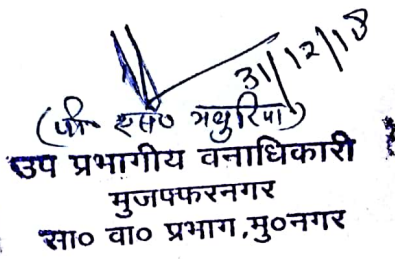 31/12/18
(पी० एस० मथुरिया)
उप प्रभागीय वनाधिकारी
मुजफ्फरनगर
सा० वा० प्रभाग,मु०नगर